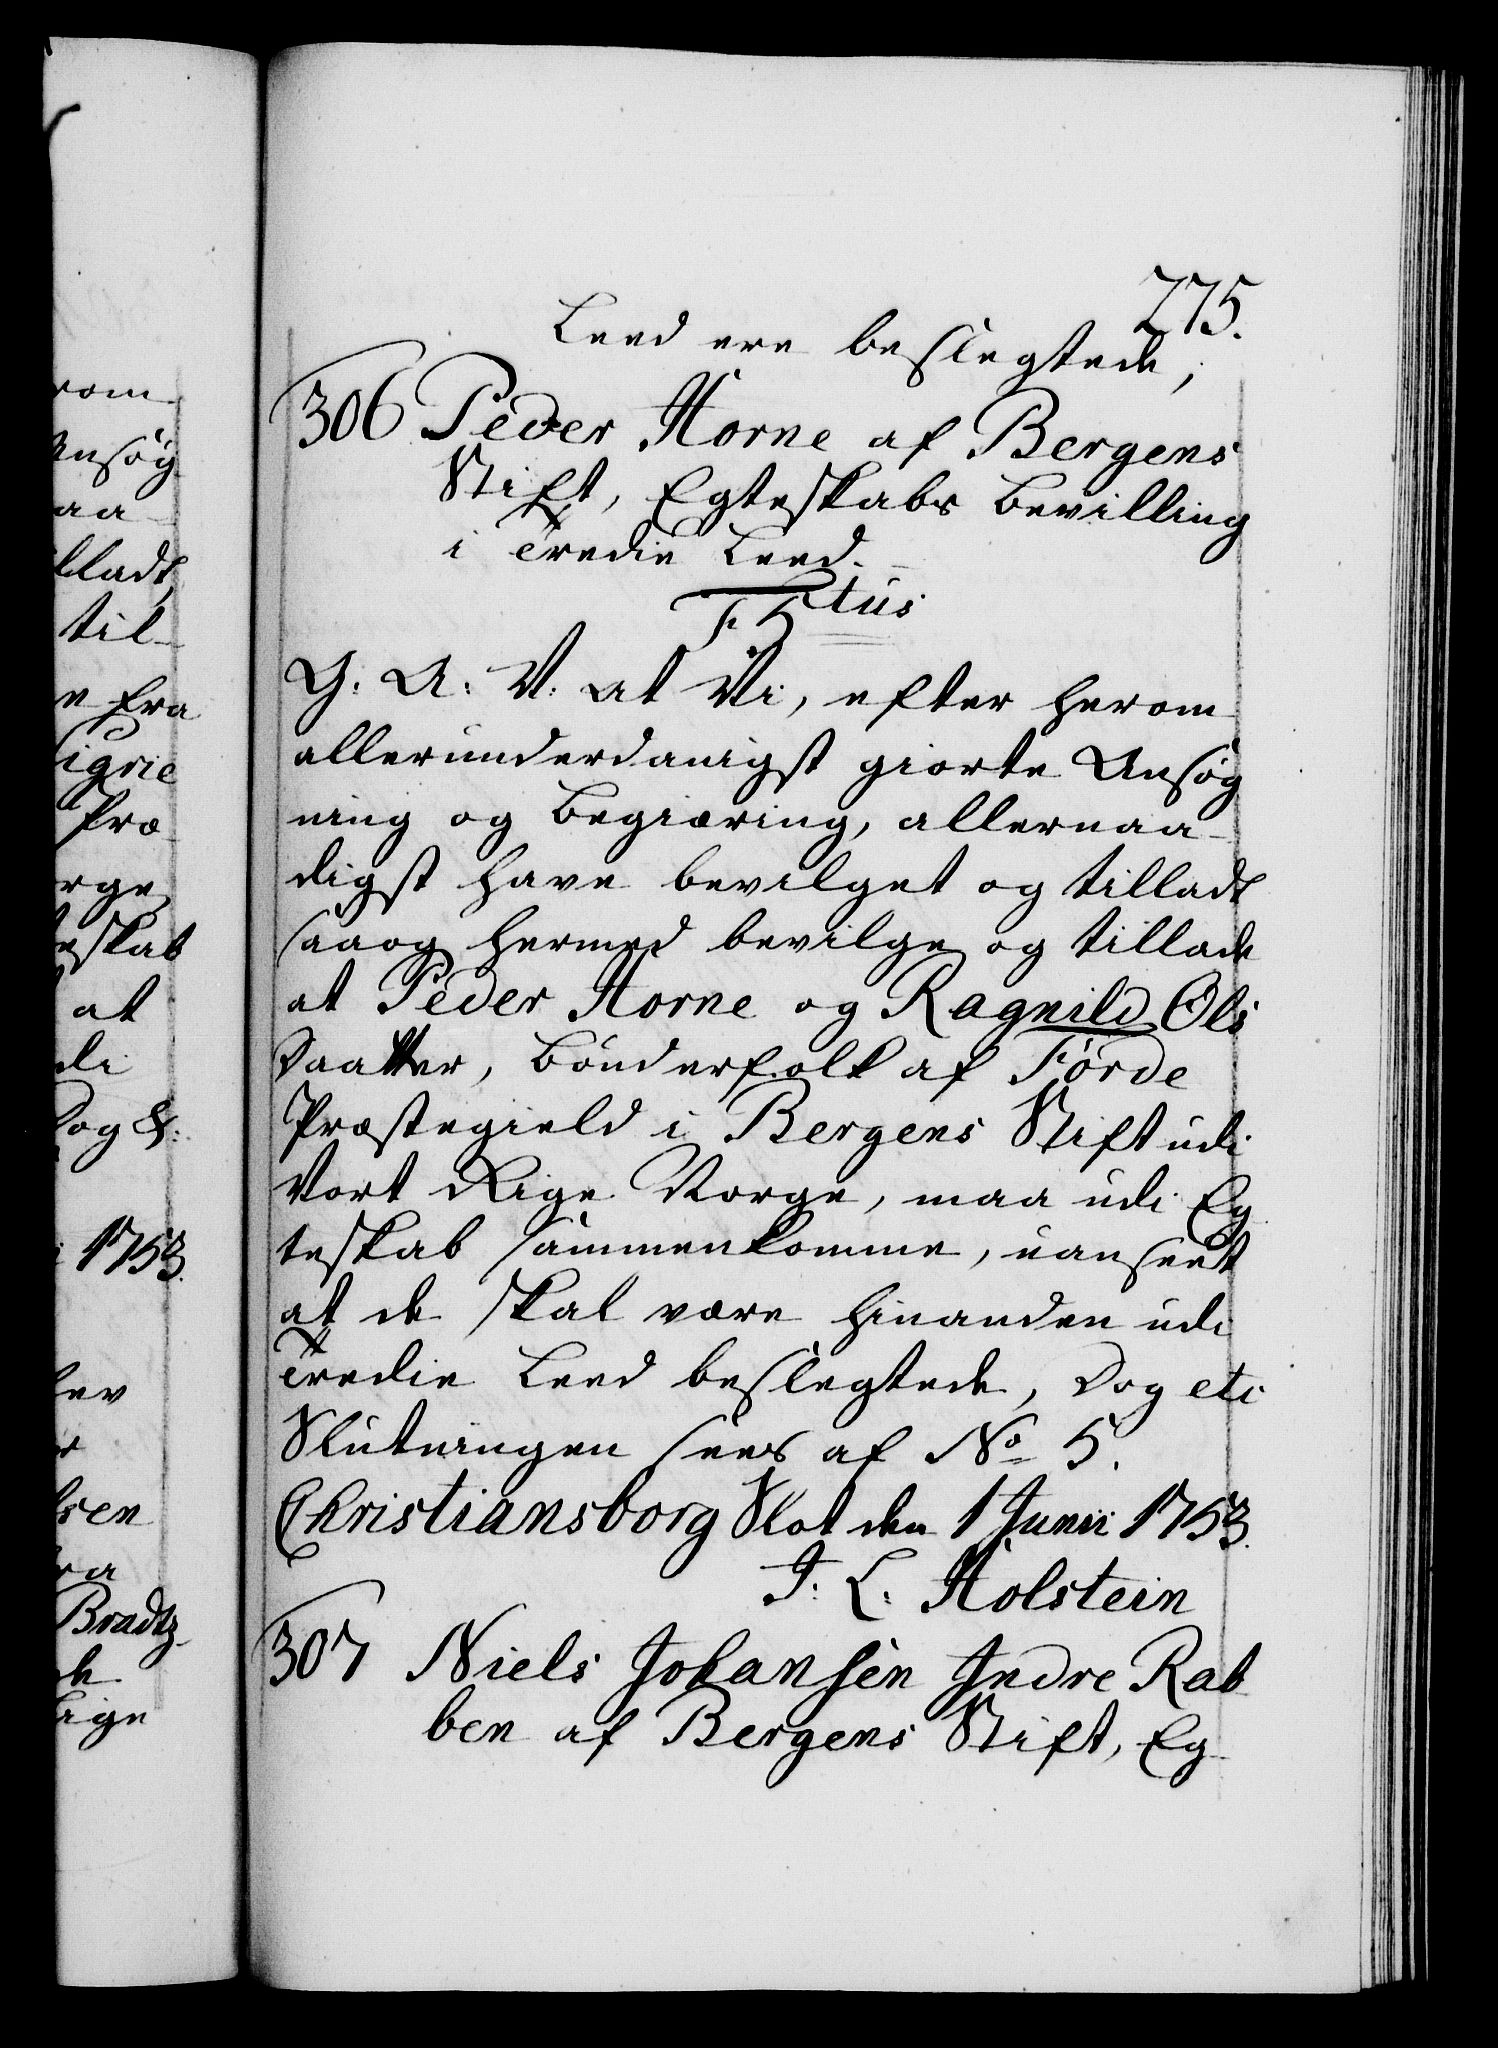 275.
Leed ere beslegtede,
306 Peder Horne af Bergens
Stift, Egteskabs Bevilling
i Tredie Leed.
F. 5tus
G: A: V: at Vi, efter herom
allerunderdanigst giorte Ansøg
ning og Begiæring, allernaa-
digst have bevilget og tilladt
saaog hermed bevilge og tillade
at Peder Horne og Ragnild Ols
Daatter, Bønderfolk af Førde
Præstegield i Bergens Stift udi
Vort Rige Norge, maa udi Eg
teskab sammenkomme, uanseet
at de skal være hinanden udi
Tredie Leed beslegtede, Dog etc
Slutningen sees af No 5.
Christiansborg Slot den 1 Junii 1753.
J. L: Holstein
307 Niels Johansen Indre Rab
ben af Bergens Stift, Eg-
rom
Ansøg
aa
lladt,
til-
e fra
igrie
Præ
rge,
eskab
at
di
Dog &:
1753.
lev
sen
ra
Bradtz-
de
Rige